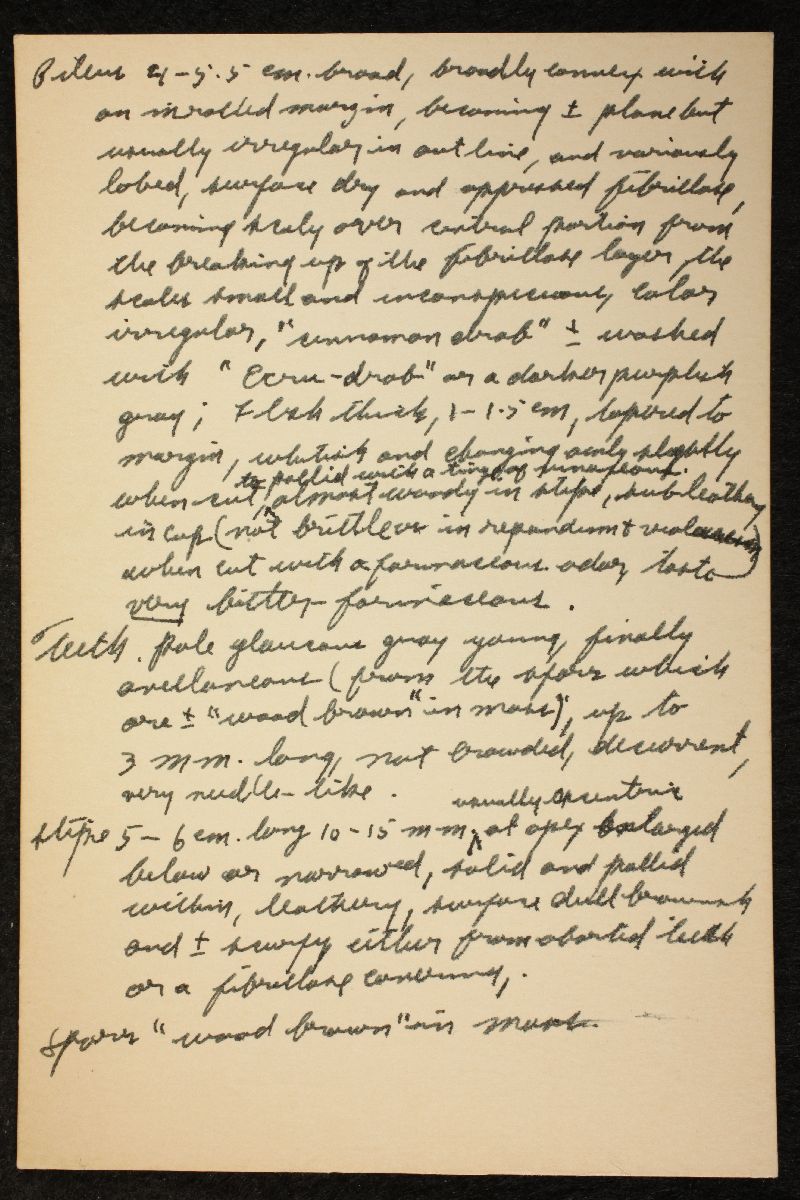 Pileus 4-5.5 cm. broad, broadly convex with
an inrolled margin, becoming ± plane but
usually irregular in outline, and variously
lobed, surface dry and appressed fibrillose,
becoming scaly over central portion from
the breaking up of the fibrillose layer, the
scales small and inconspicuous, color
irregular, "cinnamon drab" ± washed
with "Ecru-drab" or a darker purplish
gray; Flesh thick, 1-1.5 cm, tapered to
margin, whitish and changing only slightly
to pallid with a tinge of vinaceous.
when cut, almost woody in stipe, subleathery
in cap (not brittle as in repandum +
when cut with a farinaceous odor, taste
very bitter-farinaceous.
Teeth. pale glaucous gray young, finally
avellaneous (from the spores which
are ± "wood brown" in mass), up to
3 mm. long, not crowded, decurrent,
very needle-like.
usually excentric
stipe 5-6 cm. long 10-15 mm, at apex enlarged
below or narrowed, solid and pallid
within, leathery, surface dull brownish
and ± scurfy either from aborted teeth
or a fibrillose covering,.
Spores "wood brown" in mass.